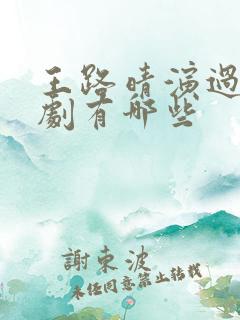 王路晴演過
劇有哪些
謝東波
未任同意禁止转载